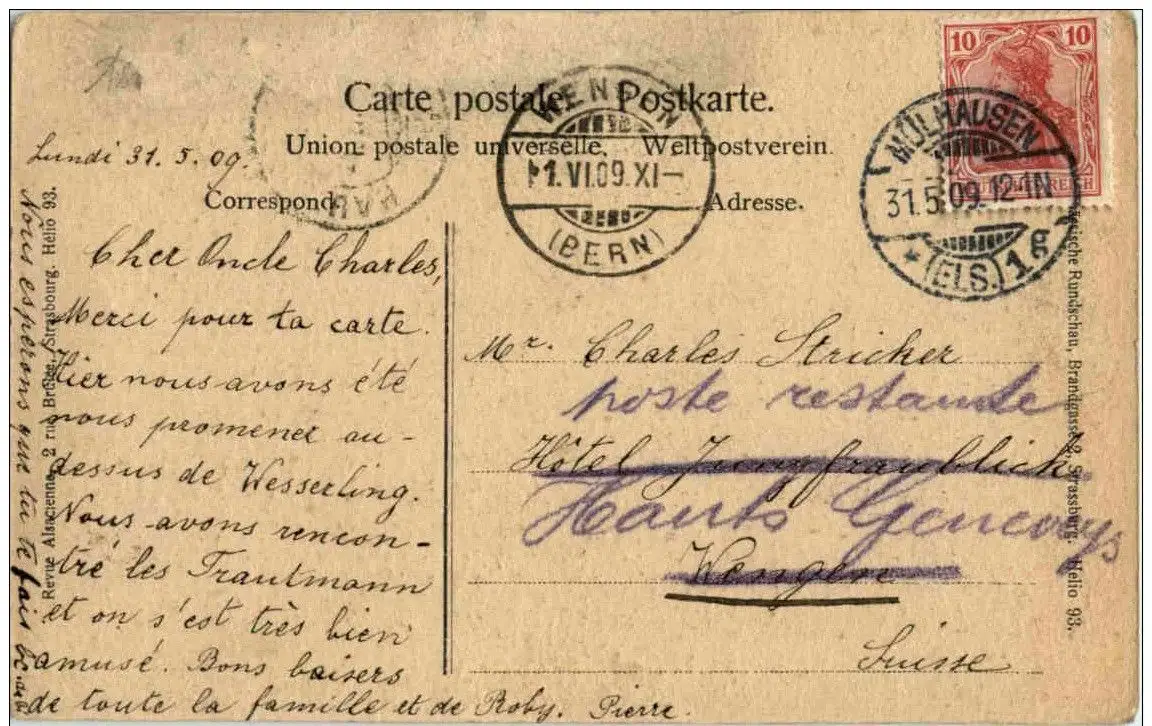 Carte postale Postkarte.
Union postale universelle. Weltpostverein.
Correspond. Adresse.
10 10
MÜLHAUSEN
31.5.09.12-1N
(ELS.) 1g
WENGEN
1.VI.09.XI-
(BERN)
Lundi 31.5.09.
Cher Oncle Charles,
Merci pour ta carte.
Hier nous avons été
nous promener au-
dessus de Wesserling.
Nous avons rencon-
tré les Trautmann
et on s'est très bien
amusé. Bons baisers
de toute la famille et de Roby. Pierre.
Nous espérons que tu te fais
Mr. Charles Stricker
poste restante
Hôtel Jungfraublick
Hauts Geneveys
Wengen
Suisse
Revue Alsacienne, 2 rue Brûlée, Strasbourg. Hélio 93.
Rundschau, Brandgasse 2, Strassburg. Helio 93.